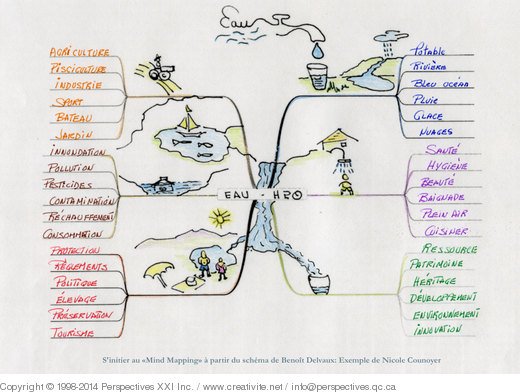 Eau
AGRICULTURE
PISCICULTURE
INDUSTRIE
SPORT
BATEAU
JARDIN
INNONDATION
POLLUTION
PESTICIDES
CONTAMINATION
RÉCHAUFFEMENT
CONSOMMATION
PROTECTION
RÈGLEMENTS
POLITIQUE
ÉLEVAGE
PRÉSERVATION
TOURISME
EAU = H2O
POTABLE
RIVIÈRE
BLEU OCÉAN
PLUIE
GLACE
NUAGES
SANTÉ
HYGIÈNE
BEAUTÉ
BAIGNADE
PLEIN AIR
CUISINER
RESSOURCE
PATRIMOINE
HÉRITAGE
DÉVELOPPEMENT
ENVIRONNEMENT
INNOVATION
S'initier au «Mind Mapping» à partir du schéma de Benoît Delvaux: Exemple de Nicole Counoyer
Copyright © 1998-2014 Perspectives XXI Inc. / www.creativite.net / info@perspectives.qc.ca